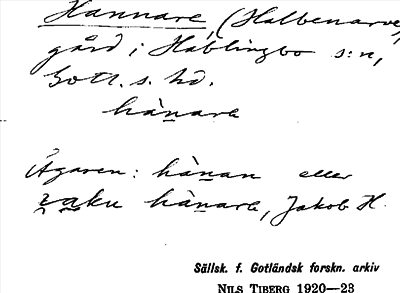 Hannare (Halbenarve)
gård i Hablingbo s:n,
Gotl. s. hd.
hànarε
Ägaren: hànan eller
hànarε, Jakob H.
Sällsk. f. Gotländsk forskn. arkiv
NILS TIBERG 1920—23